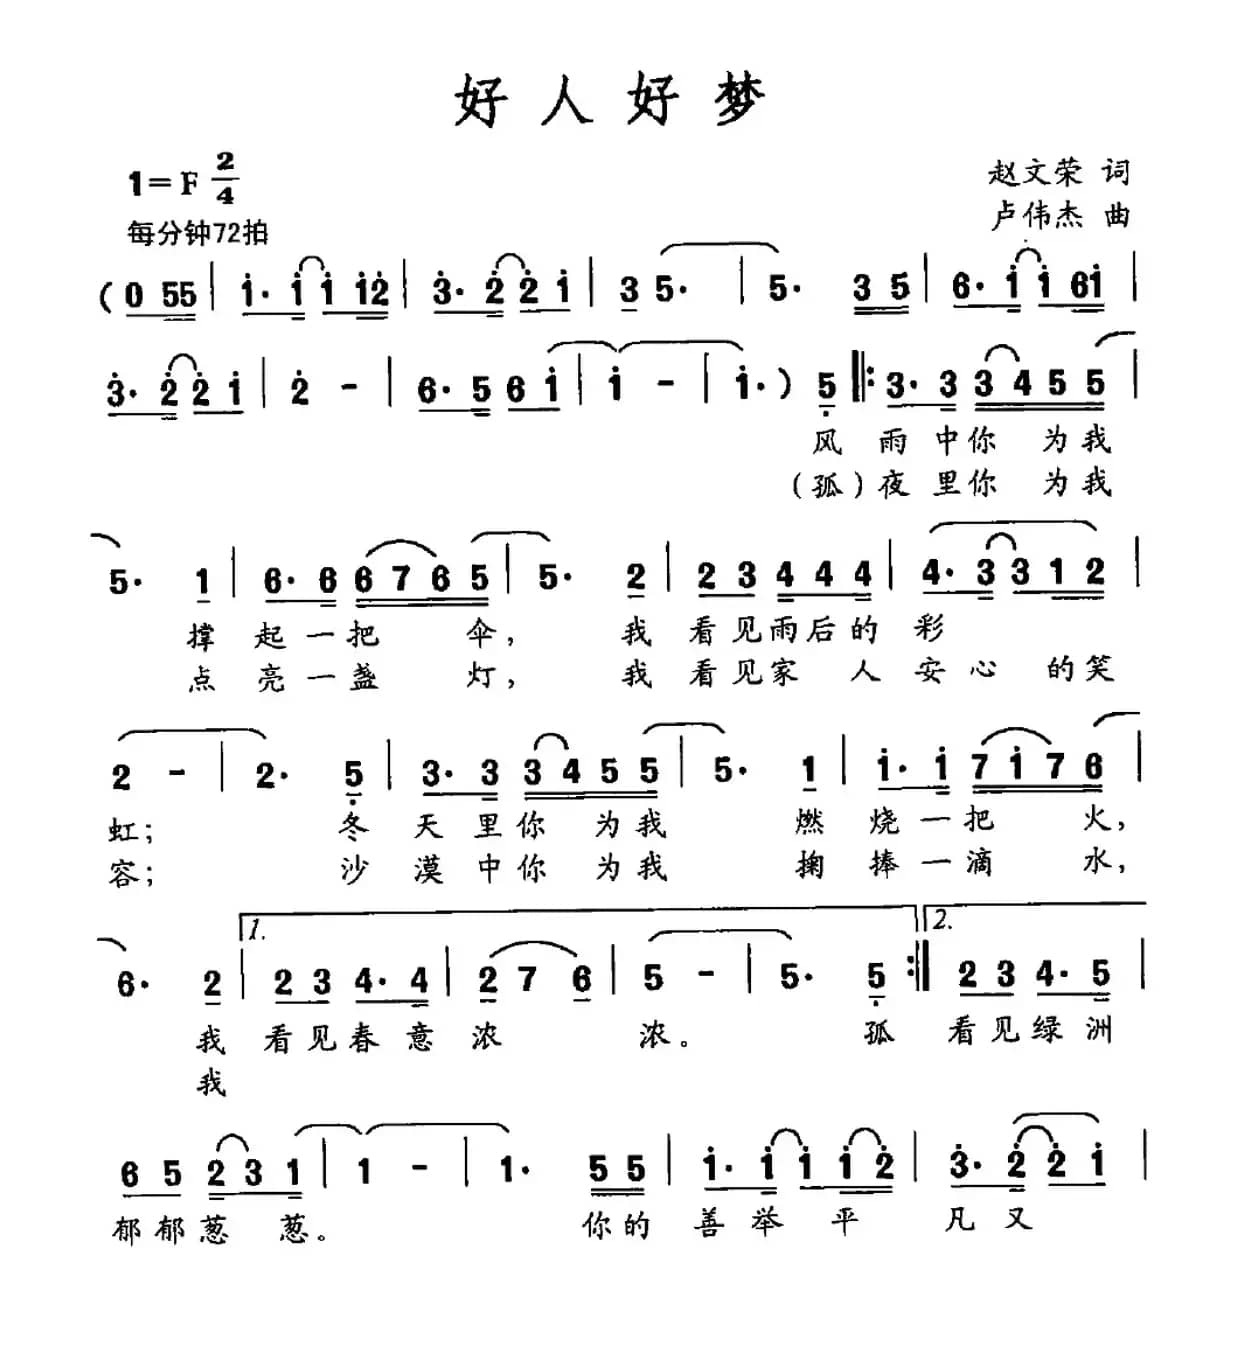 好人好梦
1=F 2/4
赵文荣 词
每分钟72拍
卢伟杰 曲
(0 55 | 1· 1 1 12 | 3· 2 2 1 | 3 5· | 5· 35 | 6· 1 1 61 |
3· 2 2 1 | 2 - | 6· 5 6 1 | 1 - | 1·) 5 ‖: 3· 3 3 4 5 5 |
风 雨 中 你 为 我
(孤) 夜 里 你 为 我
5· 1 | 6· 6 6 7 6 5 | 5· 2 | 2 3 4 4 4 | 4· 3 3 1 2 |
撑 起 一 把 伞, 我 看 见 雨 后 的 彩
点 亮 一 盏 灯, 我 看 见 家 人 安 心 的 笑
2 - | 2· 5 | 3· 3 3 4 5 5 | 5· 1 | 1· 1 7 1 7 6 |
虹; 冬 天 里 你 为 我 燃 烧 一 把 火,
容; 沙 漠 中 你 为 我 掬 捧 一 滴 水,
1. 2.
6· 2 | 2 3 4· 4 | 2 7 6 | 5 - | 5· 5 :‖ 2 3 4· 5 |
我 看 见 春 意 浓 浓。 孤 看 见 绿 洲
我
6 5 2 3 1 | 1 - | 1· 5 5 | 1· 1 1 1 2 | 3· 2 2 1 |
郁 郁 葱 葱。 你 的 善 举 平 凡 又